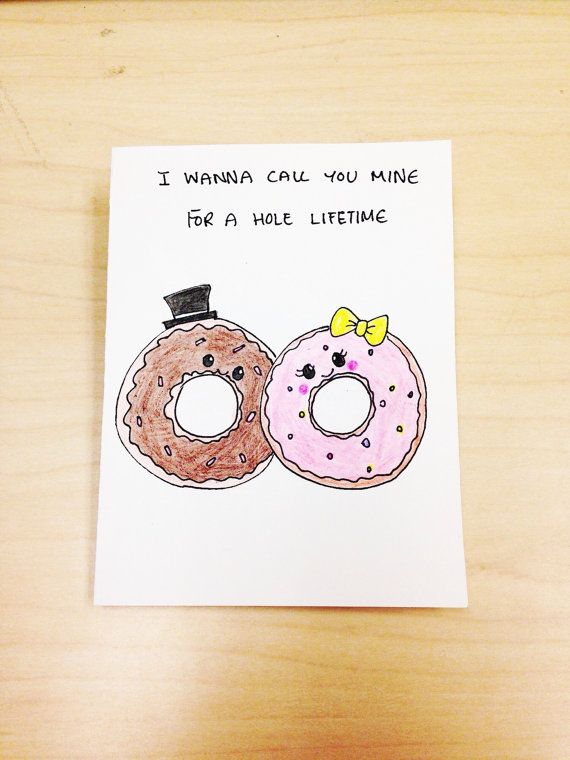 I WANNA CALL YOU MINE
FOR A HOLE LIFETIME